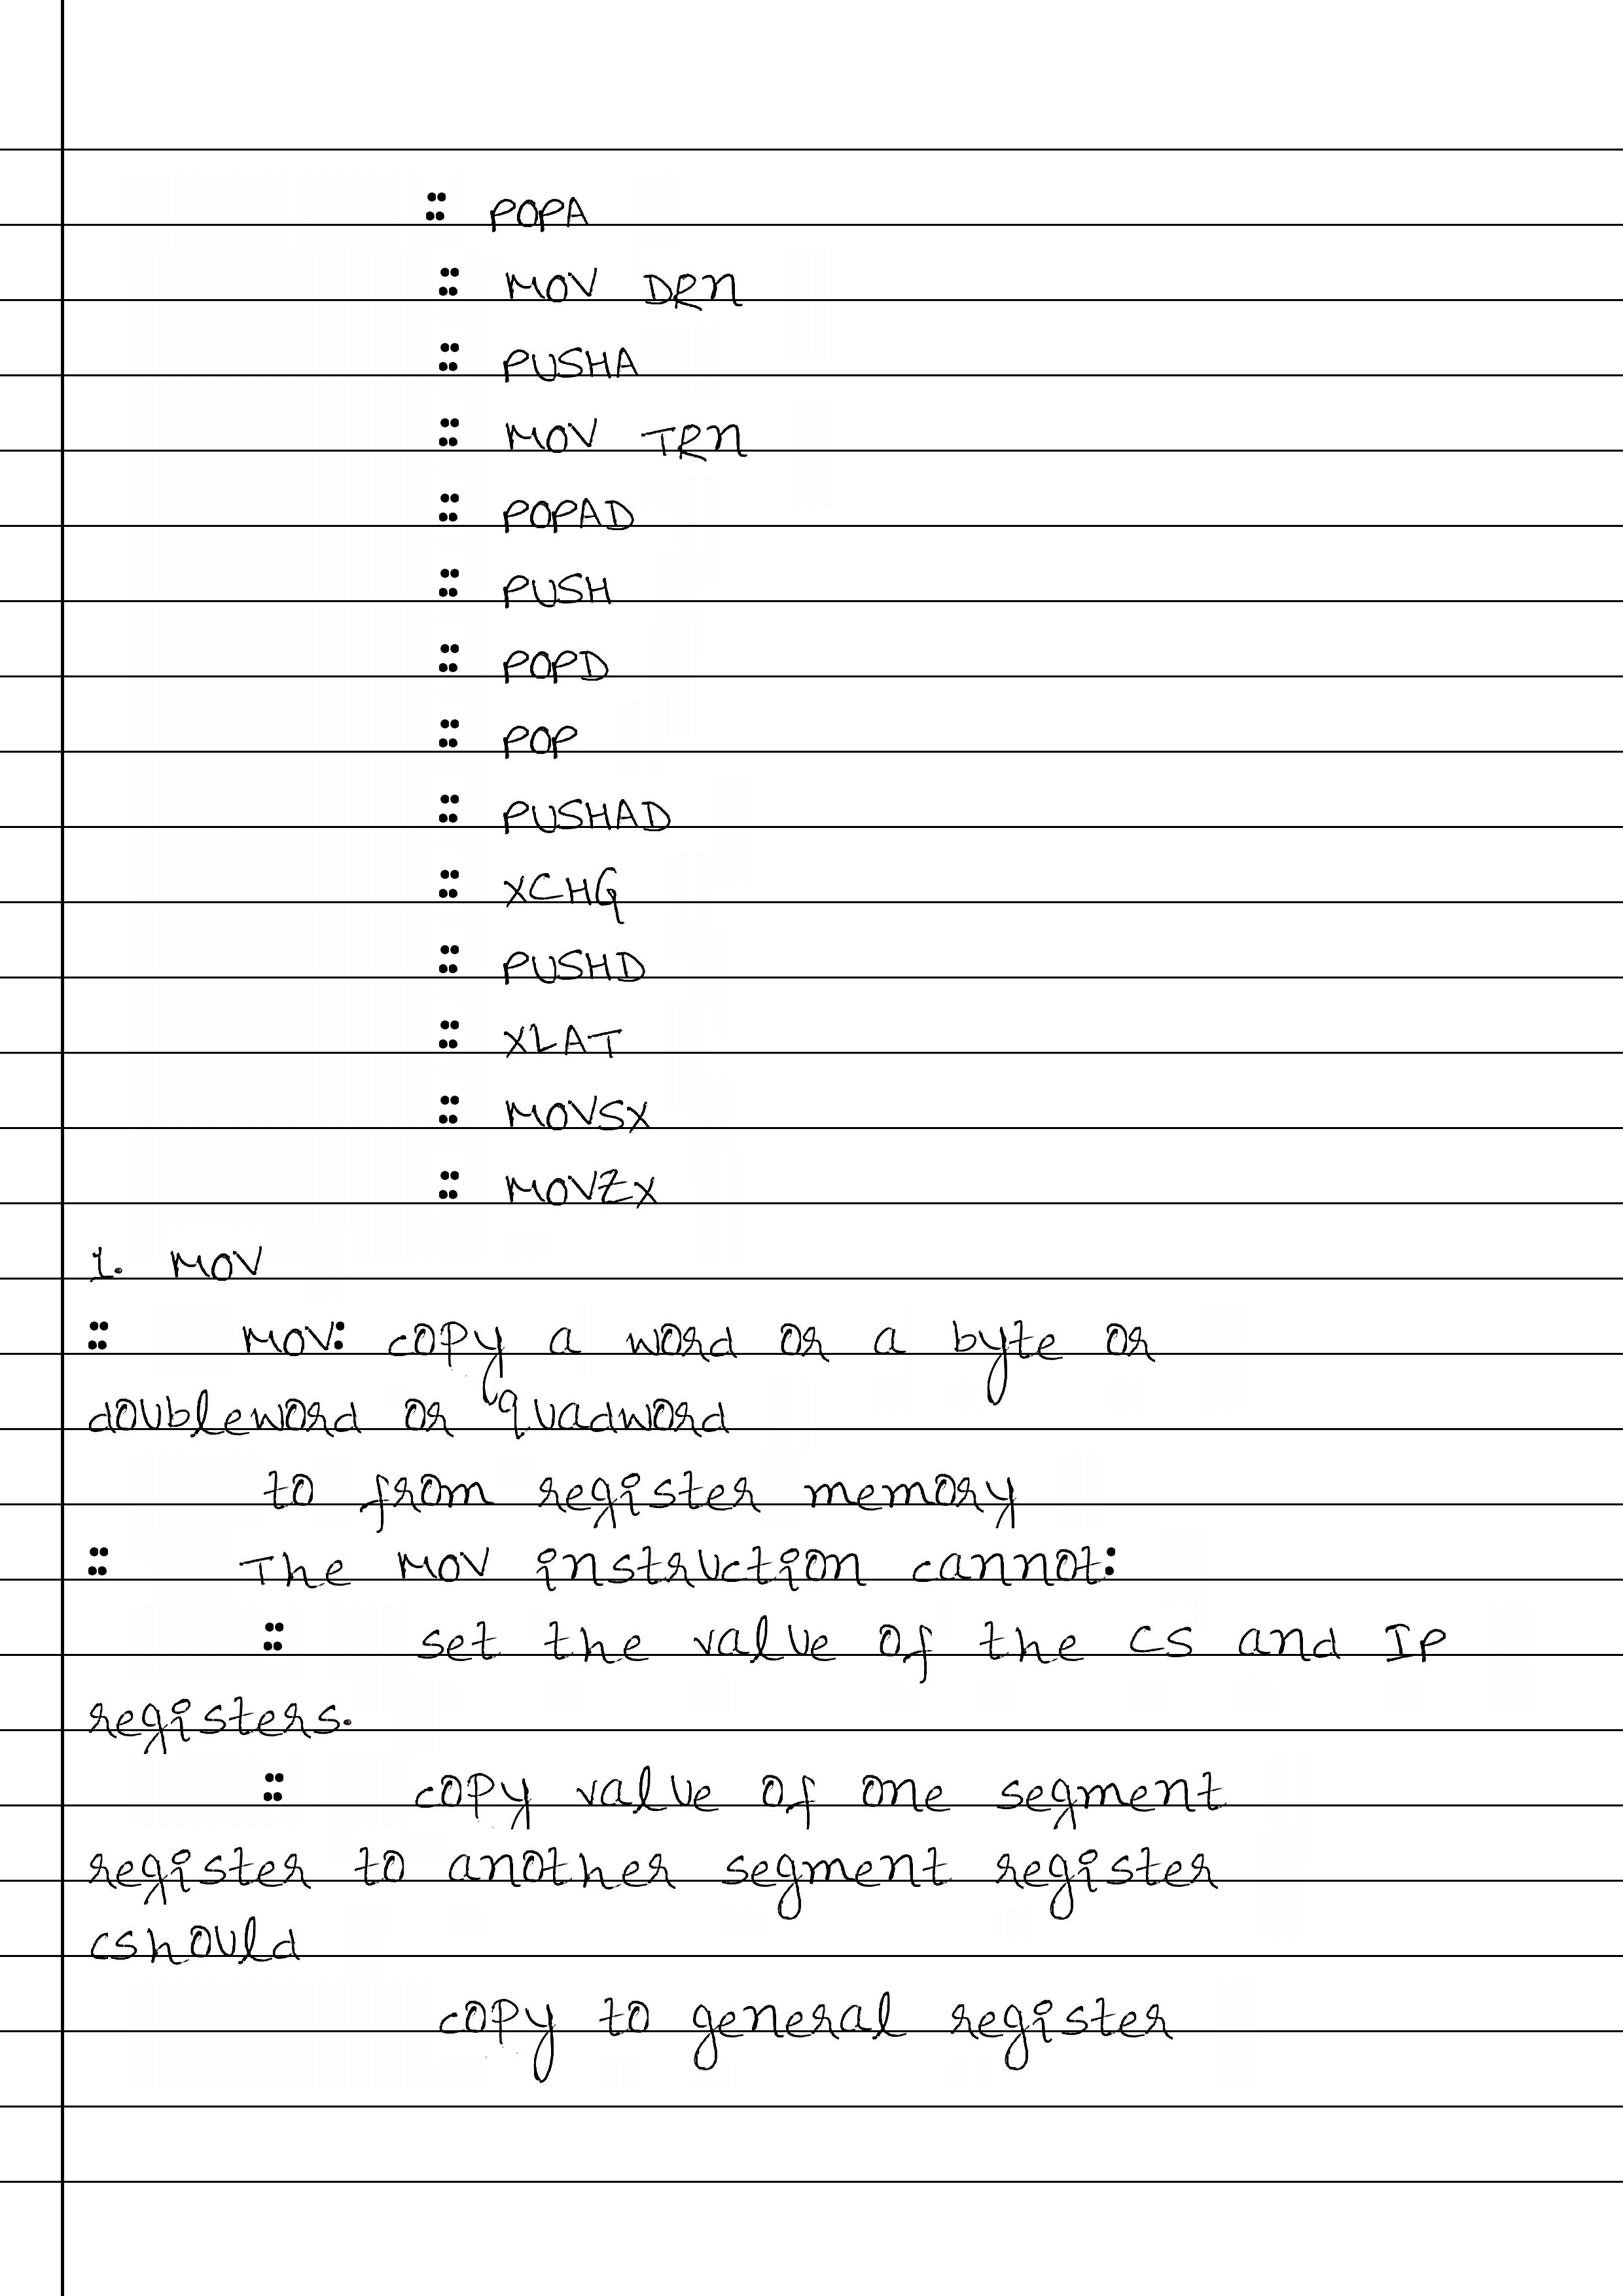 :: POPA
:: MOV DRn
:: PUSHA
:: MOV TRn
:: POPAD
:: PUSH
:: POPD
:: POP
:: PUSHAD
:: XCHG
:: PUSHD
:: XLAT
:: MOVSX
:: MOVZX
1. MOV
:: MOV: copy a word or a byte or
doubleword or quadword
to from register memory
:: The MOV instruction cannot:
:: set the value of the CS and IP
registers.
:: copy value of one segment
register to another segment register
cshould
copy to general register